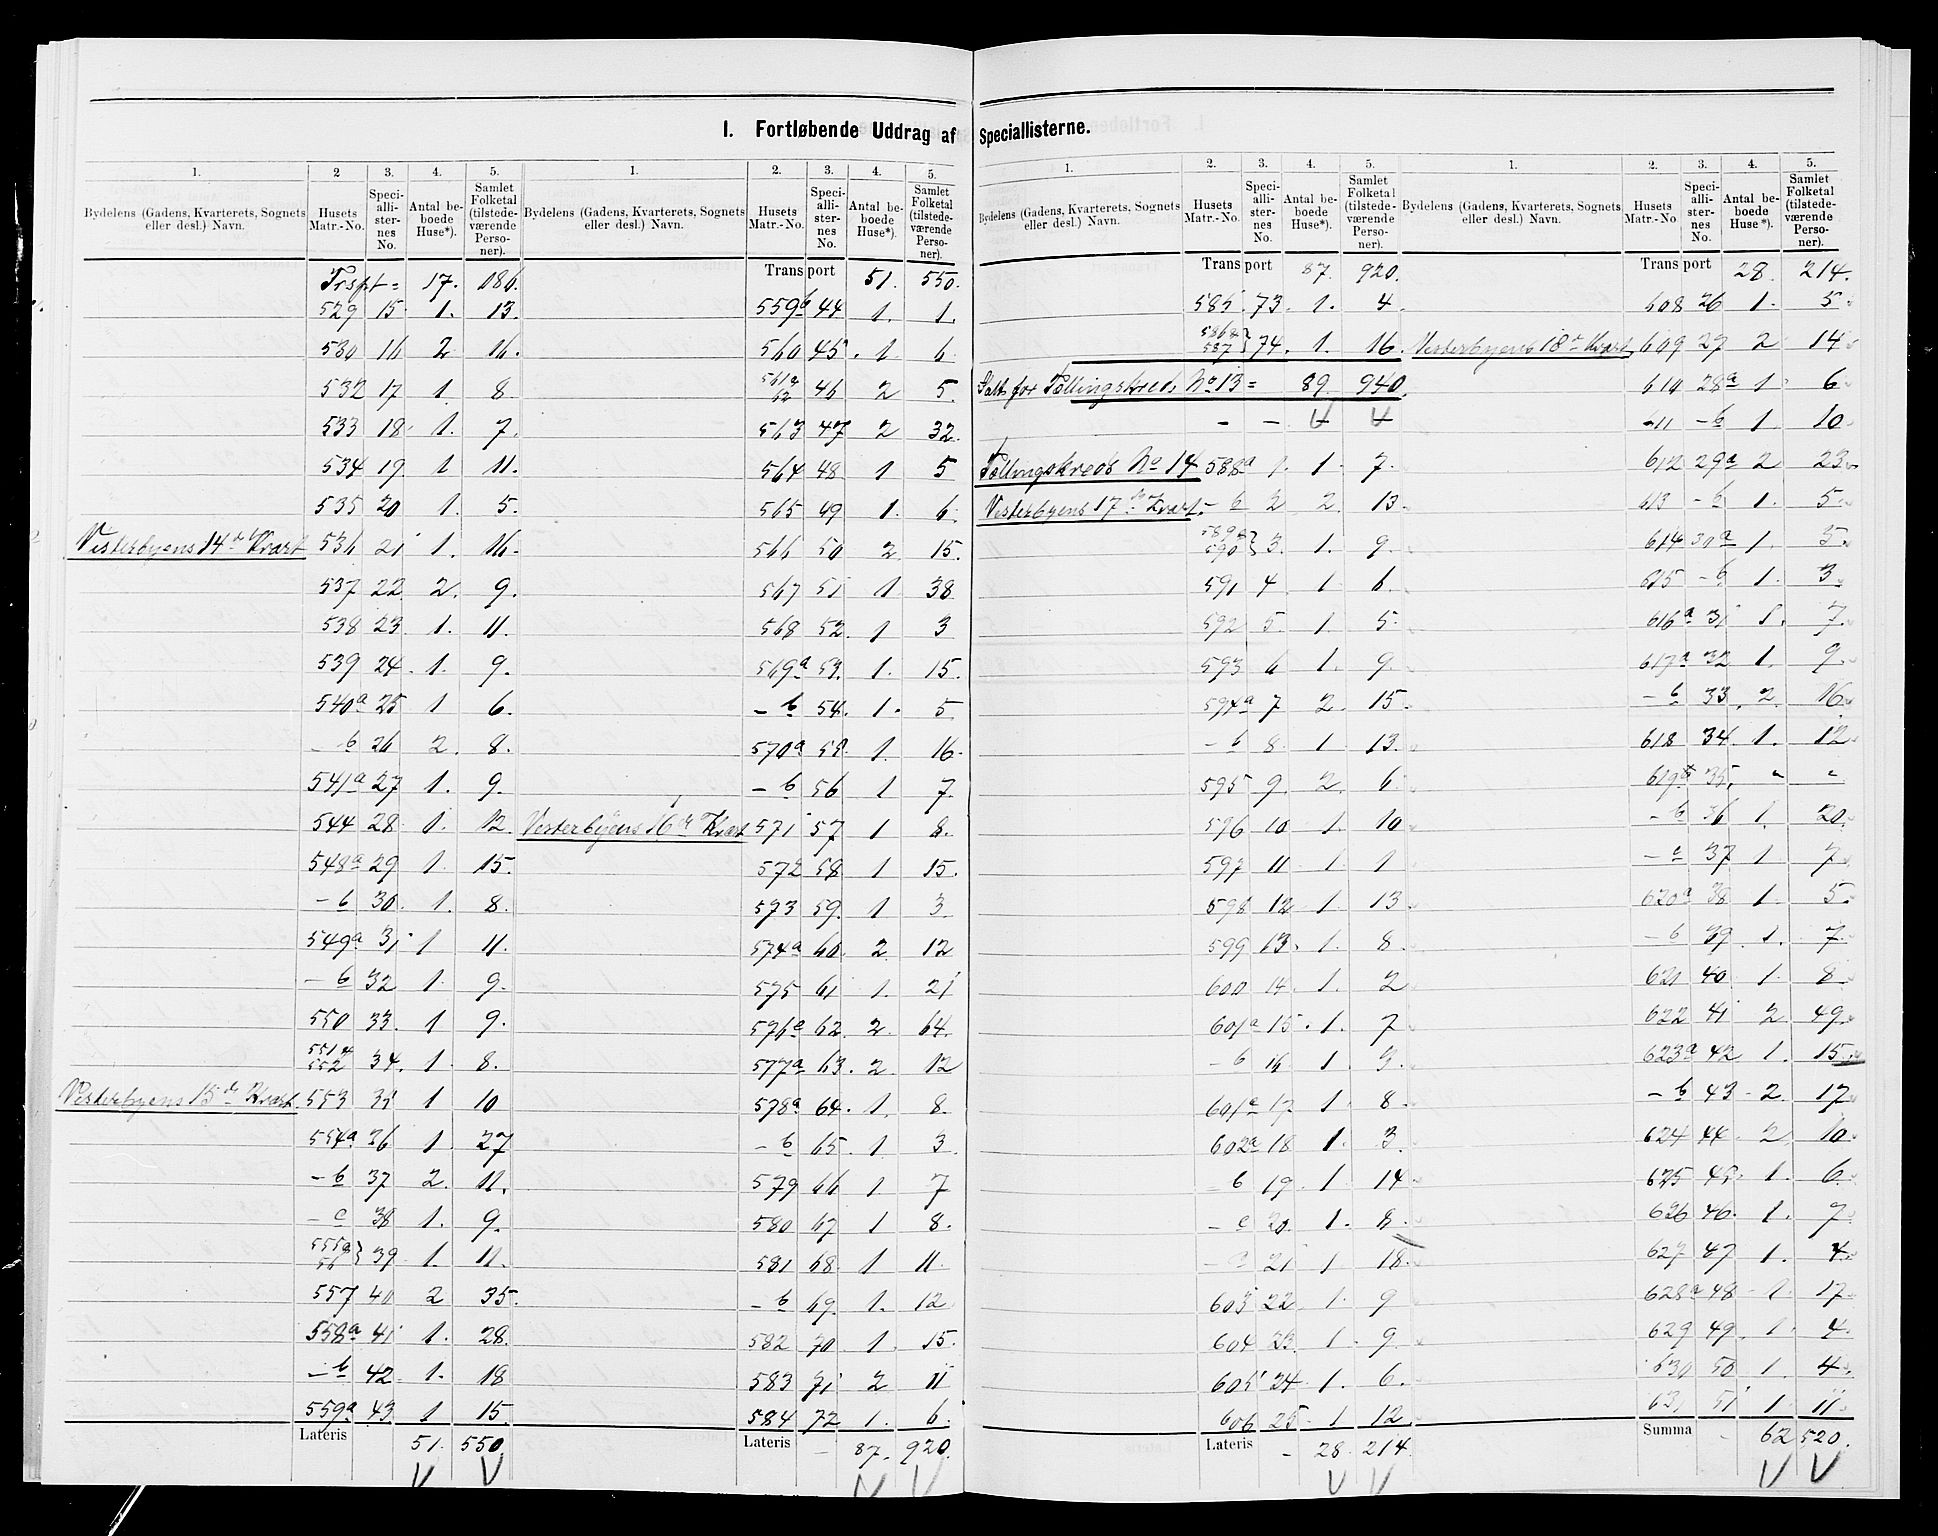 I. Fortløbende Uddrag af Speciallisterne.
1. 2 3. 4. 5. 1. 2. 3. 4. 5.
Bydelens (Gadens, Kvarterets, Sognets eller desl.) Navn. Husets Matr.-No. Speciallisternes No. Antal beboede Huse*). Samlet Folketal (tilstedeværende Personer).
Bydelens (Gadens, Kvarterets, Sognets eller desl.) Navn. Husets Matr.-No. Speciallisternes No. Antal beboede Huse*). Samlet Folketal (tilstedeværende Personer).
Trspt = 17. 186.
529 15 1. 13.
530 16 2 16.
532 17 1 8.
533 18 1. 7.
534 19 1 11.
535 20 1. 5.
Vesterbyens 14de Kvart 536 21 1. 16.
537 22 2. 9.
538 23 1. 11.
539 24 1. 9.
540a 25 1 6.
- b 26 2. 8.
541a 27 1. 9.
544 28 1. 12.
548a 29 1. 15.
- b 30. 1. 8.
549a 31 1 11.
- b 32 1. 9.
550 33. 1 9.
551 & 552 34. 1. 8.
Vesterbyens 15de Kvart. 553 35 1 10
554a 36 1. 27
- b 37 2. 11.
- c 38 1. 9.
555 & 56 } 39 1. 11.
557 40 2 35.
558a 41 1. 28.
- b 42 1. 18
559a 43 1 15.
Lateris 51. 550.
Transport 51. 550.
559b 44 1. 1.
560 45. 1 6.
561 & 62 46 2 5.
563 47 2 32.
564 48 1 5
565 49 1. 6.
566 50 2. 15.
567 51 1 38
568 52. 1 3
569a 53. 1. 15.
- b 54. 1. 5.
570a 55. 1. 16.
- b 56 1 7.
Vesterbyens 16de Kvart 571 57 1 8.
572 58 1 15.
573 59. 1 3.
574a 60. 2 12
575 61 1. 21
576a 62. 2. 64.
577a 63. 2. 12
578a 64. 1. 8.
- b 65. 1. 3
579 66 1. 7
580 67 1 8.
581 68 1 11.
- b 69. 1. 12
582 70 1. 15.
583 71 2 11
584 72 1. 6.
Lateris - 87. 920.
1. 2. 3. 4. 5. 1. 2. 3. 4. 5.
Bydelens (Gadens, Kvarterets, Sognets eller desl.) Navn. Husets Matr.-No. Speciallisternes No. Antal beboede Huse*). Samlet Folketal (tilstedeværende Personer).
Bydelens (Gadens, Kvarterets, Sognets eller desl.) Navn. Husets Matr.-No. Speciallisternes No. Antal beboede Huse*). Samlet Folketal (tilstedeværende Personer).
Transport 87. 920.
585 73 1. 4
586 & 587 } 74. 1. 16.
for Tællingskreds No 13 = 89. 940.
Tællingskreds No 14 588a 1. 1. 7.
Vesterbyens 17de Kvart. - b 2 2. 13.
589 & 590 } 3. 1. 9.
591 4 1 6.
592 5. 1. 5.
593 6 1. 9.
594a 7 2. 15.
- b 8. 1 13.
595 9. 2. 6.
596 10 1. 10
597 11 1. 1
598 12 1. 13
599 13. 1. 8.
600 14. 1. 2
601a 15. 1. 7
- b 16 1 3.
601c 17. 1 8.
602a 18 1. 3.
- b 19. 1. 14.
- c 20. 1. 8.
- c 21 1 18.
603 22 1. 9
604 23. 1. 9.
605 24 1. 6.
606 25 1 12.
Lateris - 28. 214.
Transport 28. 214.
608 26 1. 5
Vesterbyens 18de Kvart. 609 27 2 14
610 28a 1. 6.
611 - b 1. 10.
612 29a 2 23.
613 - b 1. 5.
614 30a 1. 5.
615 - b 1. 3.
616a 31 1. 7.
617a 32 1. 9.
- b 33. 2. 16
618 34. 1. 12
619a 35. " "
- b 36 1. 20.
- c 37 1 7
620a 38 1. 5.
- b 39. 1. 7.
621 40 1. 8
622 41 2 49.
623a 42 1. 15.
- b 43 2. 17
624 44 2. 10.
625 45. 1. 6.
626 46. 1. 7
627 47 1. 4.
628a 48 1 17
629 49. 1. 4.
630 50 1. 4.
631 51 1. 11.
Summa - 62 520.